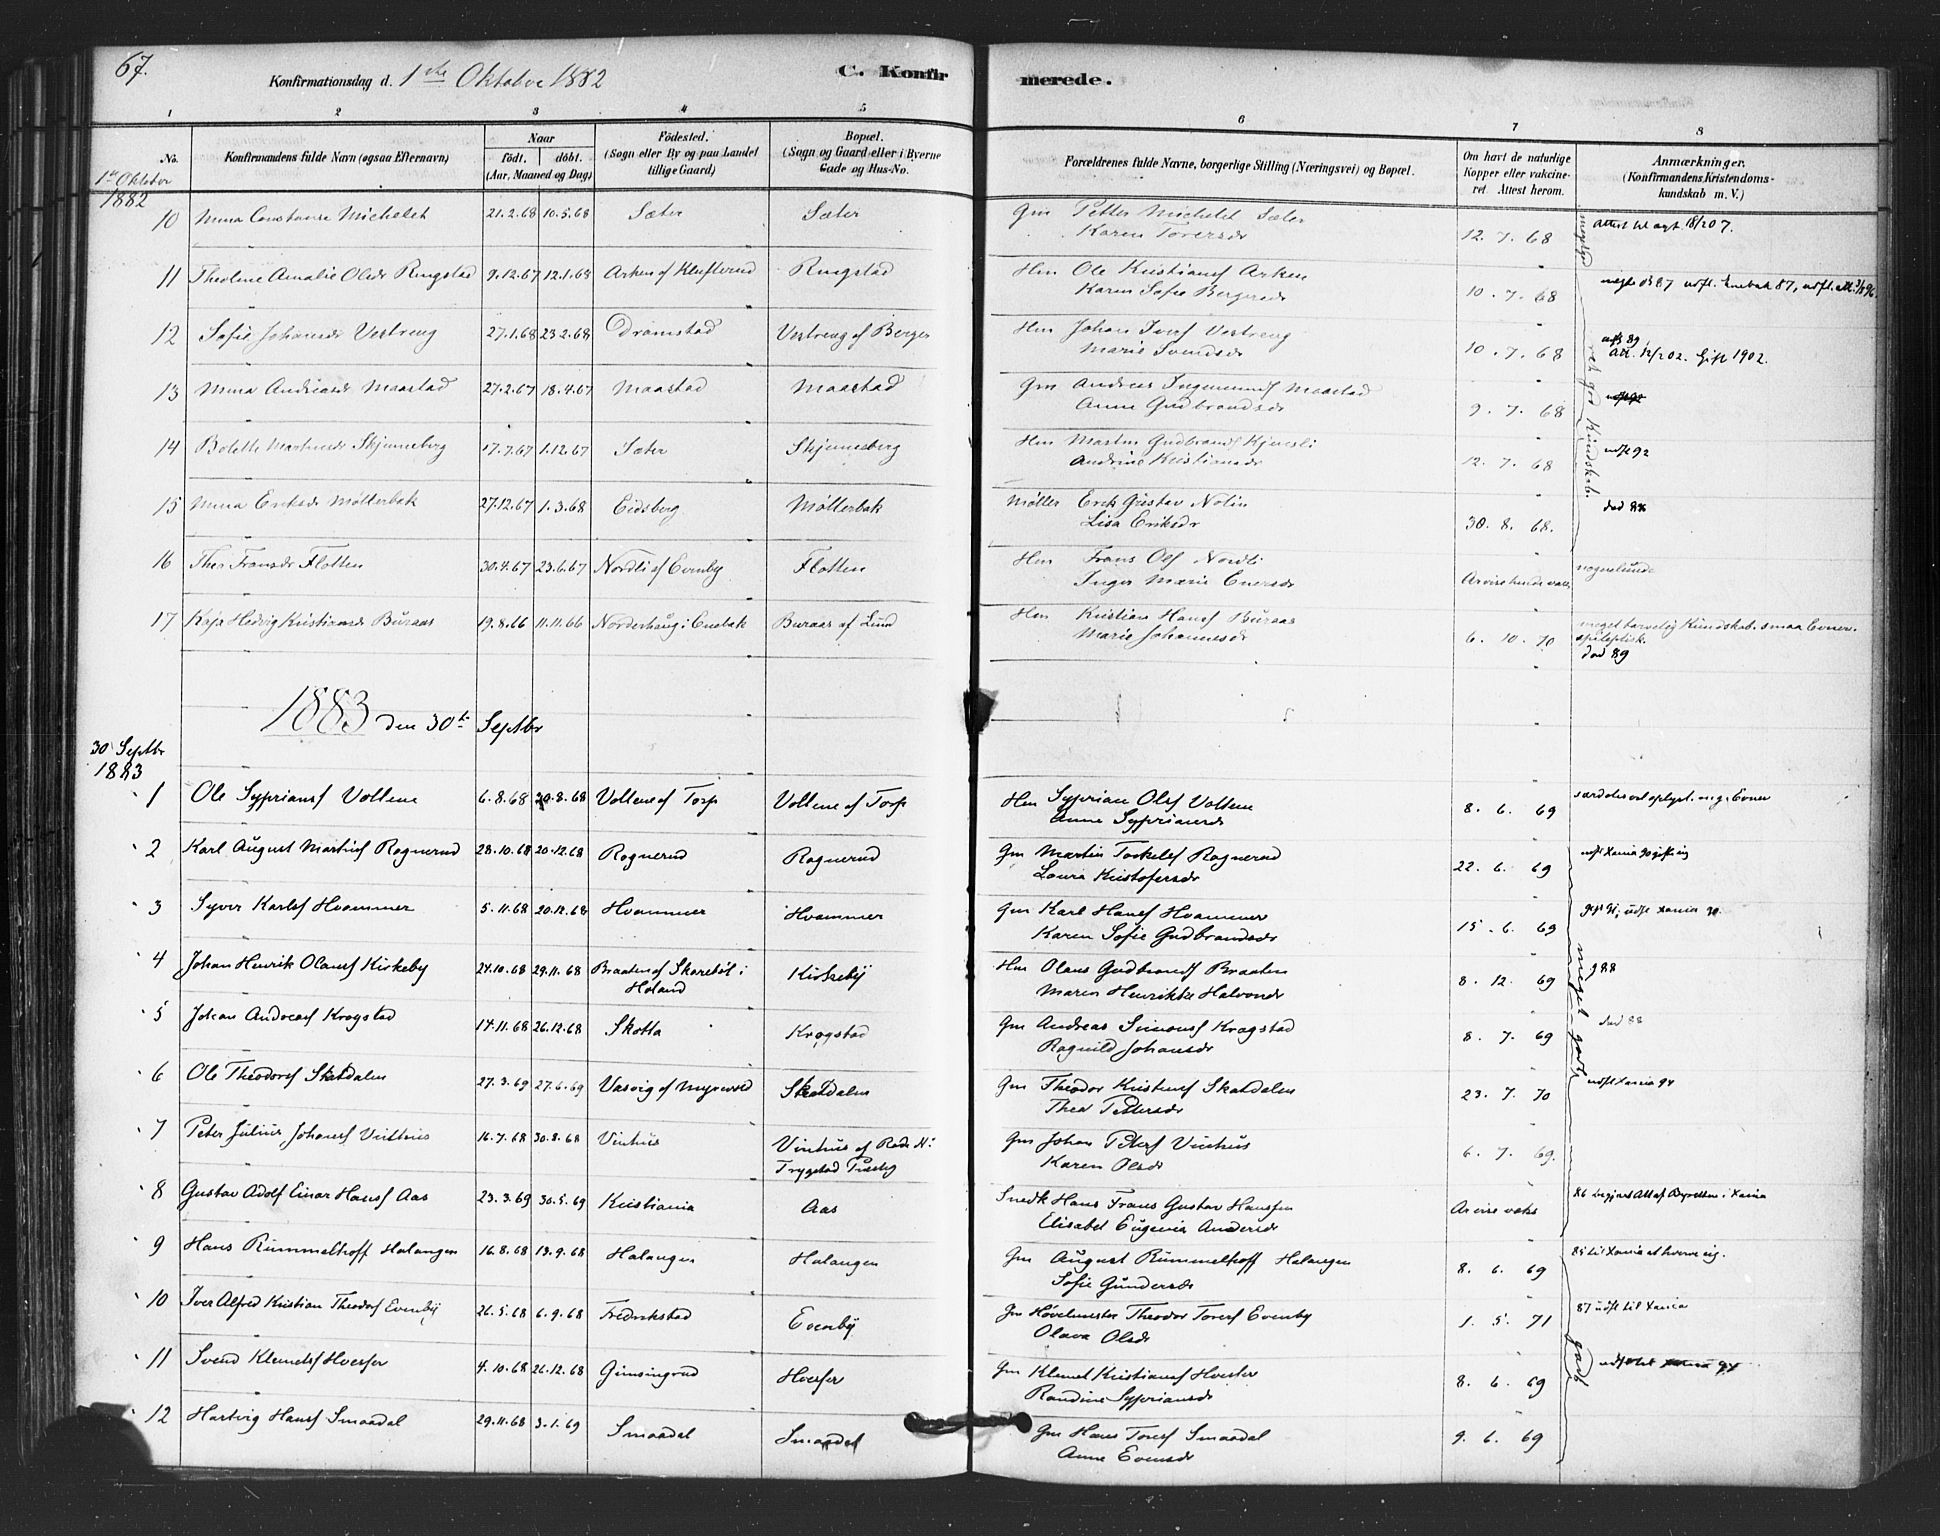 67.
Konfirmationsdag d. 1ste Oktober 1882
C. Konfirmerede.
1 2 3 4 5 6 7 8
No. Konfirmandens fulde Navn (ogsaa Efternavn) Naar født. døbt. (Aar, Maaned og Dag) Fødested. (Sogn eller By og paa Landet tillige Gaard) Bopæl. (Sogn og Gaard eller i Byerne Gade og Hus-No. Forældrenes fulde Navne, borgerlige Stilling (Næringsvei) og Bopæl. Om havt de naturlige Kopper eller vakcineret. Attest herom. Anmærkninger. (Konfirmandens Kristendomskundskab m. V.)
1ste Oktober
1882
10 Mina Constanse Michelet 21.2.68 10.5.68 Sæter Sæter Gm Petter Michelet Sæter
Karen Toversdr 12. 7. 68 Attest til ægt. 18/2 07.
11 Theoline Amalie Olsdr Ringstad 9.12.67 12.1.68 Arken af Klufterud Ringstad Hm Ole Kristiansf Arken
Karen Sofie Bergersdr 10. 7. 68
12 Sofie Johansdr Vestreng 27.1.68 23.2.68 Dramstad Vestreng af Berger Hm Johan Iversf Vestreng
Marie Svendsdr 10. 7. 68 Att. 12/2 02. Gift 1902.
13 Mina Andreasdr Maastad 27.2.67 18.4.67 Maastad Maastad Gm Andreas Ingemundsf Maastad
Anne Gudbrandsdr 9. 7. 68
14 Bolette Martinsdr Skjenneberg 17.7.67 1.12.67 Sæter Skjenneberg Hm Martin Gudbrandsf
Andrine Kristiansdr 12. 7. 68 udfl 92
15 Mina Eriksdr Møllerbak 27.12.67 1.3.68 Eidsberg Møllerbak Møller Erik Gustav Nolin
Lisa Eriksdr 30. 8. 68.
meget god Kundskab.
16 Thea Fransdr Flatten 30.4.67 23.6.67 Nordli af Evenby Flatten Hm Frans Olsf Nordli
Inger Marie Enersdr nogenlunde
17 Kaja Hedvig Kristiansdr Buraas 19.8.66 11.11.66 Norderhaug i Enebak Buraas af Lund Hm Kristian Hansf Buraas
Marie Johannesdr 6. 10. 70 meget tarvelig Kundskab. smaa Evner.
epileptisk.
død 89
1883 den 30te Septbr
30 Septbr
1883
1 Ole Sypriansf Voltene 6.8.68 20.8.68 Voltene af Torp Voltene af Torp Hm Syprian Olsf Voltene
Anne Sypriansdr 8. 6. 69 særdeles vel oplyst. m.g. Evner
2 Karl August Martinsf Rognerud 28.10.68 20.12.68 Rognerud Rognerud Gm Martin Torkelsf Rognerud
Lovise Kristofersdr 22. 6. 69
3 Syver Karlsf Hvammer 5.11.68 20.12.68 Hvammer Hvammer Gm Karl Hansf Hvammer
Karen Sofie Gudbrandsdr 15. 6. 69
4 Johan Henrik Olausf Kirkeby 24.10.68 29.11.68 Braaten af Skaretøl i
Høland Kirkeby Hm Olaus Gudbrandsf Braaten
Maren Henrikke Halvorsdr 8. 12. 69
5 Johan Andreasf Krogstad 14.11.68 26.12.68 Skotta Krogstad Gm Andreas Simonsf Krogstad
Ragnild Johansdr 8. 7. 69 død 88
6 Ole Theodorsf Skatdalen 27.3.69 27.6.69 Vasvig af Myrvold Skatdalen Gm Theodor Kristensf Skatdalen
Thea Pettersdr 23. 7. 70 udfl Xania 94
7 Peter Julius Johansf Vinthus 16.7.68 30.8.68 Vinthus Vinthus af
Trygstad Præstg Gm Johan Petersf Vinthus
Karen Olsdr 6. 7. 69.
8 Gustav Adolf Einar Hansf Aas 23.3.69 30.5.69 Kristiania Aas Snedk Hans Frans Gustav Hanssen
Elisabet Eugenia Andersdr
9 Hans Rummelhoff Halangen 16.8.68 13.9.68 Halangen Halangen Gm August Rummelhoff Halangen
Sofie Gundersdr 8. 6. 69
10 Iver Alfred Kristian Theodorsf Evenby 26.5.68 6.9.68 Fredrikstad Evenby Gm Høvelmester Theodor Toresf Evenby
Olava Olsdr 1. 5. 71 87 udfl til Xania
11 Svend Klemetsf Hverser 4.10.68 26.12.68 Gimsingrud Hverser Gm Klemet Kristiansf
Randine Sypriansdr 8. 6. 69
12 Hartvig Hansf Smaadal 29.11.68 3.1.69 Smaadal Smaadal Gm Hans Toresf Smaadal
Anne Evensdr 9. 6. 69
meget godt
godt